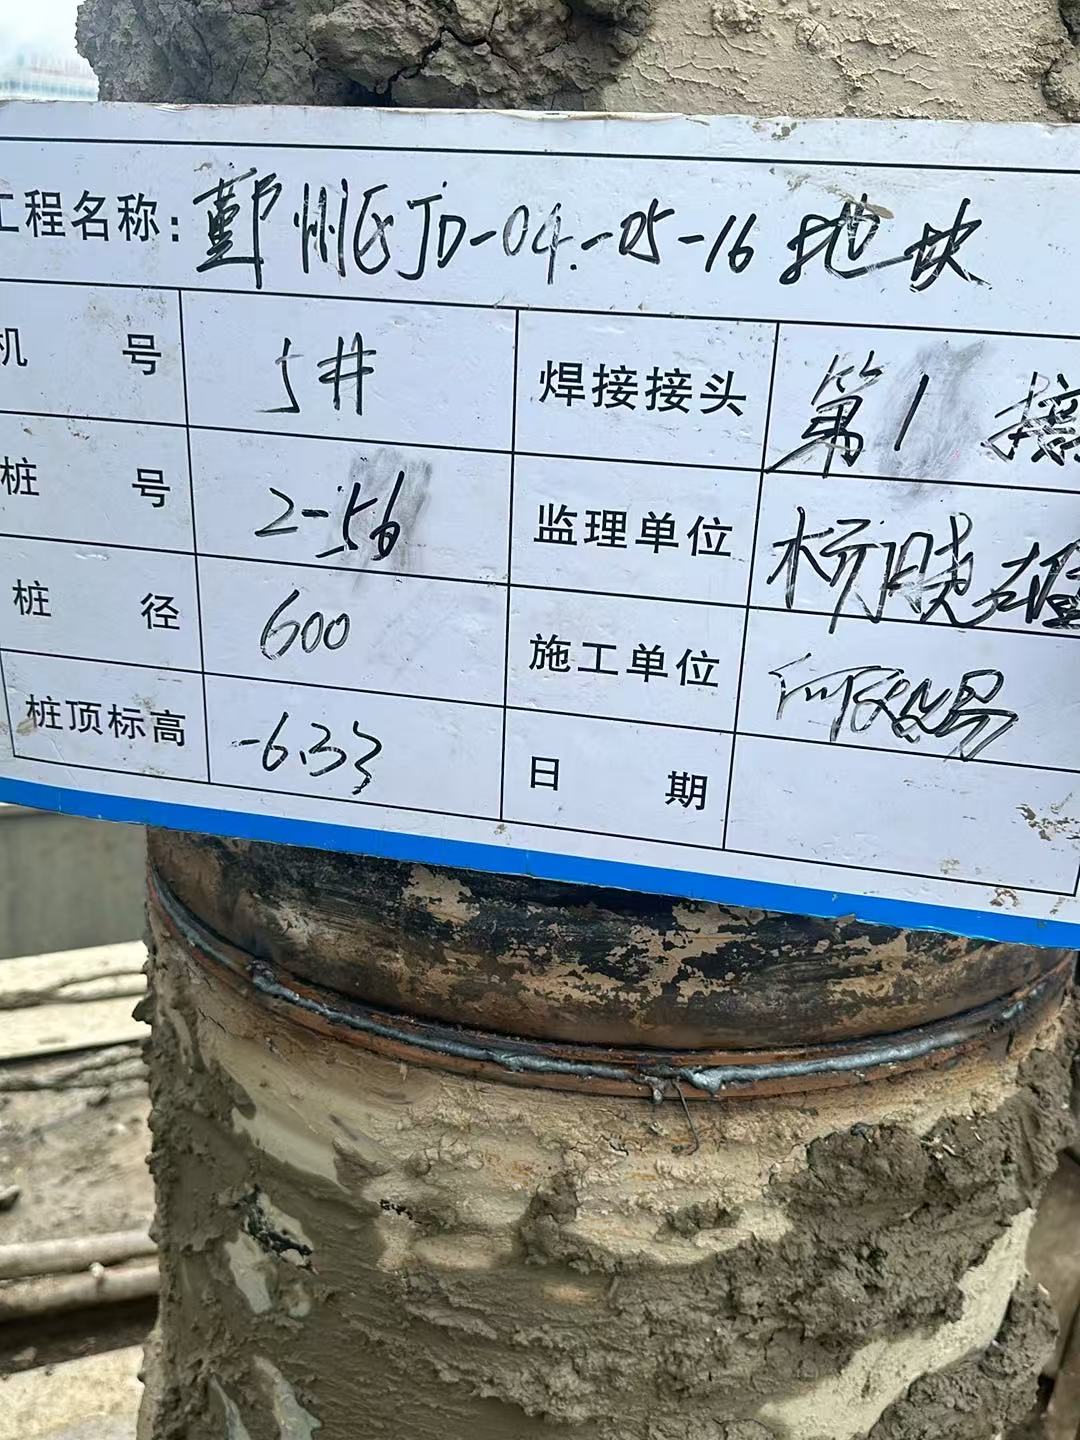 工程名称: 鄞州区JD-04-05-16地块
机 号 5# 焊接接头 第1接
桩 号 2-56 监理单位 杨晓雄
桩 径 600 施工单位 何
桩顶标高 -6.33 日 期